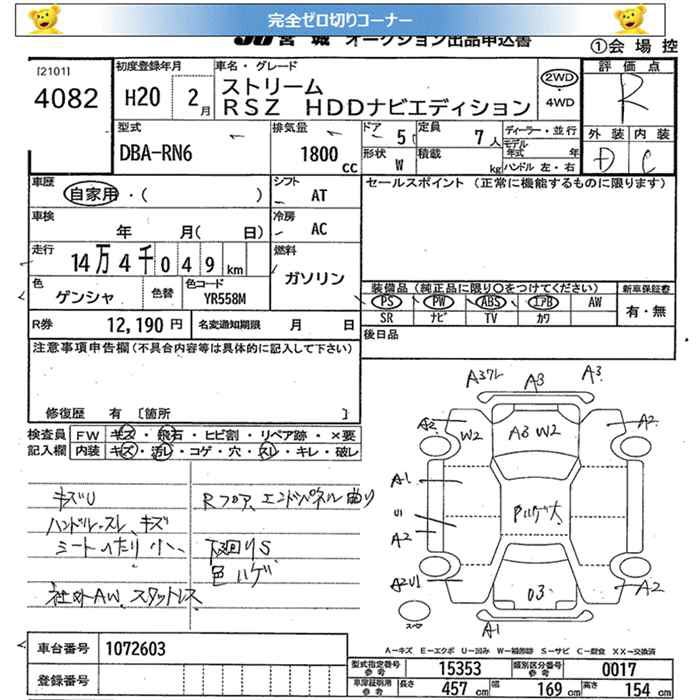 完全ゼロ切りコーナー
JU 宮城 オークション出品申込書
①会場控
[2101]
4082
初度登録年月
H20 2月
車名・グレード
ストリーム
RSZ HDDナビエディション
2WD
・
4WD
評価点
R
外装 内装
D C
型式
DBA-RN6
排気量
1800
cc
ドア 5
形状 W
定員 7人
積載 kg
ディーラー・並行
モデル年式 年
ハンドル 左・右
車歴 自家用・( )
シフト AT
セールスポイント(正常に機能するものに限ります)
車検 年 月( 日)
冷房 AC
走行 14万4千049km
燃料 ガソリン
色 ゲンシャ
色替
色コード YR558M
装備品(純正品に限り○をつけてください)
新車保証書
PS PW ABS エアB AW
SR ナビ TV カワ
有・無
R券 12,190円
名変通知期限 月 日
後日品
注意事項申告欄(不具合内容等は具体的に記入して下さい)
修復歴 有 [箇所 ]
検査員 FW キズ・飛石・ヒビ割・リペア跡・×要
記入欄 内装 キズ・汚レ・コゲ・穴・スレ・キレ・破レ
キズU
ハンドル・スレ、キズ
シートへたり 小
社外AW、スタッドレス
Rフロア、エンドパネル曲り
下廻りS
色ハゲ
A3ワレ A3 A3
A2 W2 A3 W2 A2
A1
U1
A2
ハゲ大
A2U1 U3 A2
スペア
A1
A-キズ E-エクボ U-凹み W-補修跡 S-サビ C-腐食 XX-交換済
車台番号 1072603
登録番号
型式指定番号 参考 15353
類別区分番号 参考 0017
車庫証明用 参考 長さ 457cm 幅 169cm 高さ 154cm